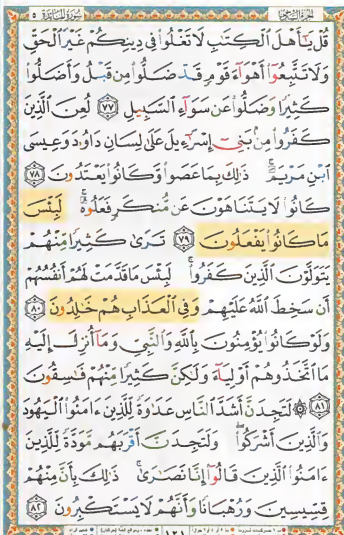 سورة المائدة ٥
قُلْ يَٰٓأَهْلَ ٱلْكِتَٰبِ لَا تَغْلُوا۟ فِى دِينِكُمْ غَيْرَ ٱلْحَقِّ
وَلَا تَتَّبِعُوٓا۟ أَهْوَآءَ قَوْمٍ قَدْ ضَلُّوا۟ مِن قَبْلُ وَأَضَلُّوا۟
كَثِيرًا وَضَلُّوا۟ عَن سَوَآءِ ٱلسَّبِيلِ ٧٧ لُعِنَ ٱلَّذِينَ
كَفَرُوا۟ مِنۢ بَنِىٓ إِسْرَٰٓءِيلَ عَلَىٰ لِسَانِ دَاوُۥدَ وَعِيسَى
ٱبْنِ مَرْيَمَ ۚ ذَٰلِكَ بِمَا عَصَوا۟ وَّكَانُوا۟ يَعْتَدُونَ ٧٨
كَانُوا۟ لَا يَتَنَاهَوْنَ عَن مُّنكَرٍ فَعَلُوهُ ۚ لَبِئْسَ
مَا كَانُوا۟ يَفْعَلُونَ ٧٩ تَرَىٰ كَثِيرًا مِّنْهُمْ
يَتَوَلَّوْنَ ٱلَّذِينَ كَفَرُوا۟ ۚ لَبِئْسَ مَا قَدَّمَتْ لَهُمْ أَنفُسُهُمْ
أَن سَخِطَ ٱللَّهُ عَلَيْهِمْ وَفِى ٱلْعَذَابِ هُمْ خَٰلِدُونَ ٨٠
وَلَوْ كَانُوا۟ يُؤْمِنُونَ بِٱللَّهِ وَٱلنَّبِىِّ وَمَآ أُنزِلَ إِلَيْهِ
مَا ٱتَّخَذُوهُمْ أَوْلِيَآءَ وَلَٰكِنَّ كَثِيرًا مِّنْهُمْ فَٰسِقُونَ
٨١ ۞ لَتَجِدَنَّ أَشَدَّ ٱلنَّاسِ عَدَٰوَةً لِّلَّذِينَ ءَامَنُوا۟ ٱلْيَهُودَ
وَٱلَّذِينَ أَشْرَكُوا۟ ۖ وَلَتَجِدَنَّ أَقْرَبَهُم مَّوَدَّةً لِّلَّذِينَ
ءَامَنُوا۟ ٱلَّذِينَ قَالُوٓا۟ إِنَّا نَصَٰرَىٰ ۚ ذَٰلِكَ بِأَنَّ مِنْهُمْ
قِسِّيسِينَ وَرُهْبَانًا وَأَنَّهُمْ لَا يَسْتَكْبِرُونَ ٨٢
١٢١